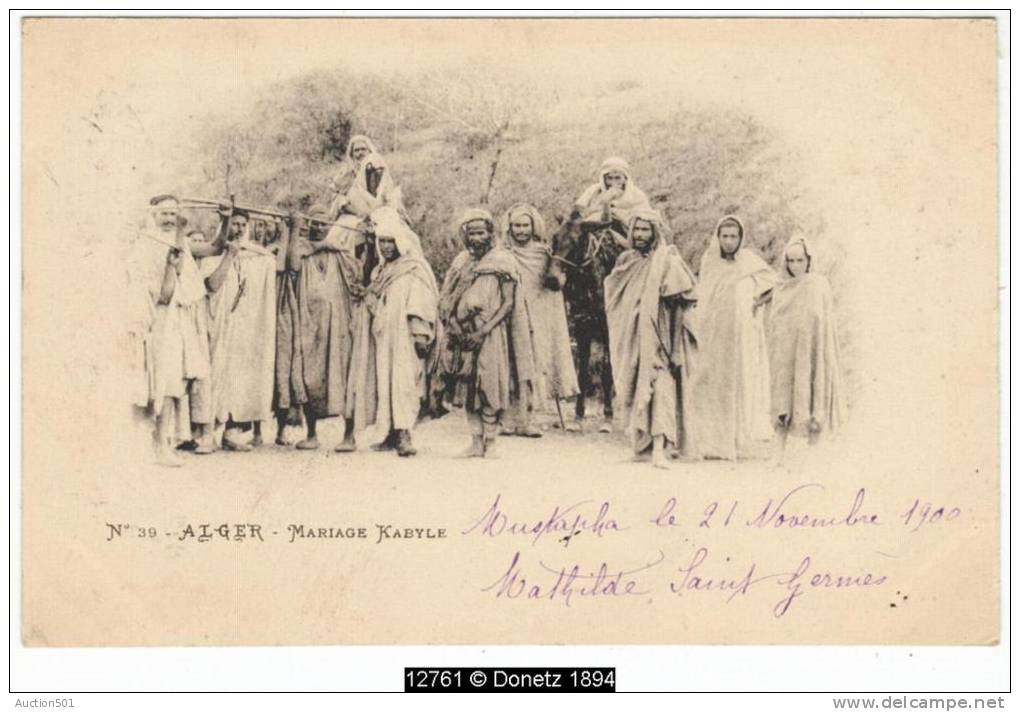 N° 39 - ALGER - MARIAGE KABYLE
Mustapha le 21 Novembre 1900
Mathilde Saint Germès
12761 © Donetz 1894
Auction501
delcampe.net